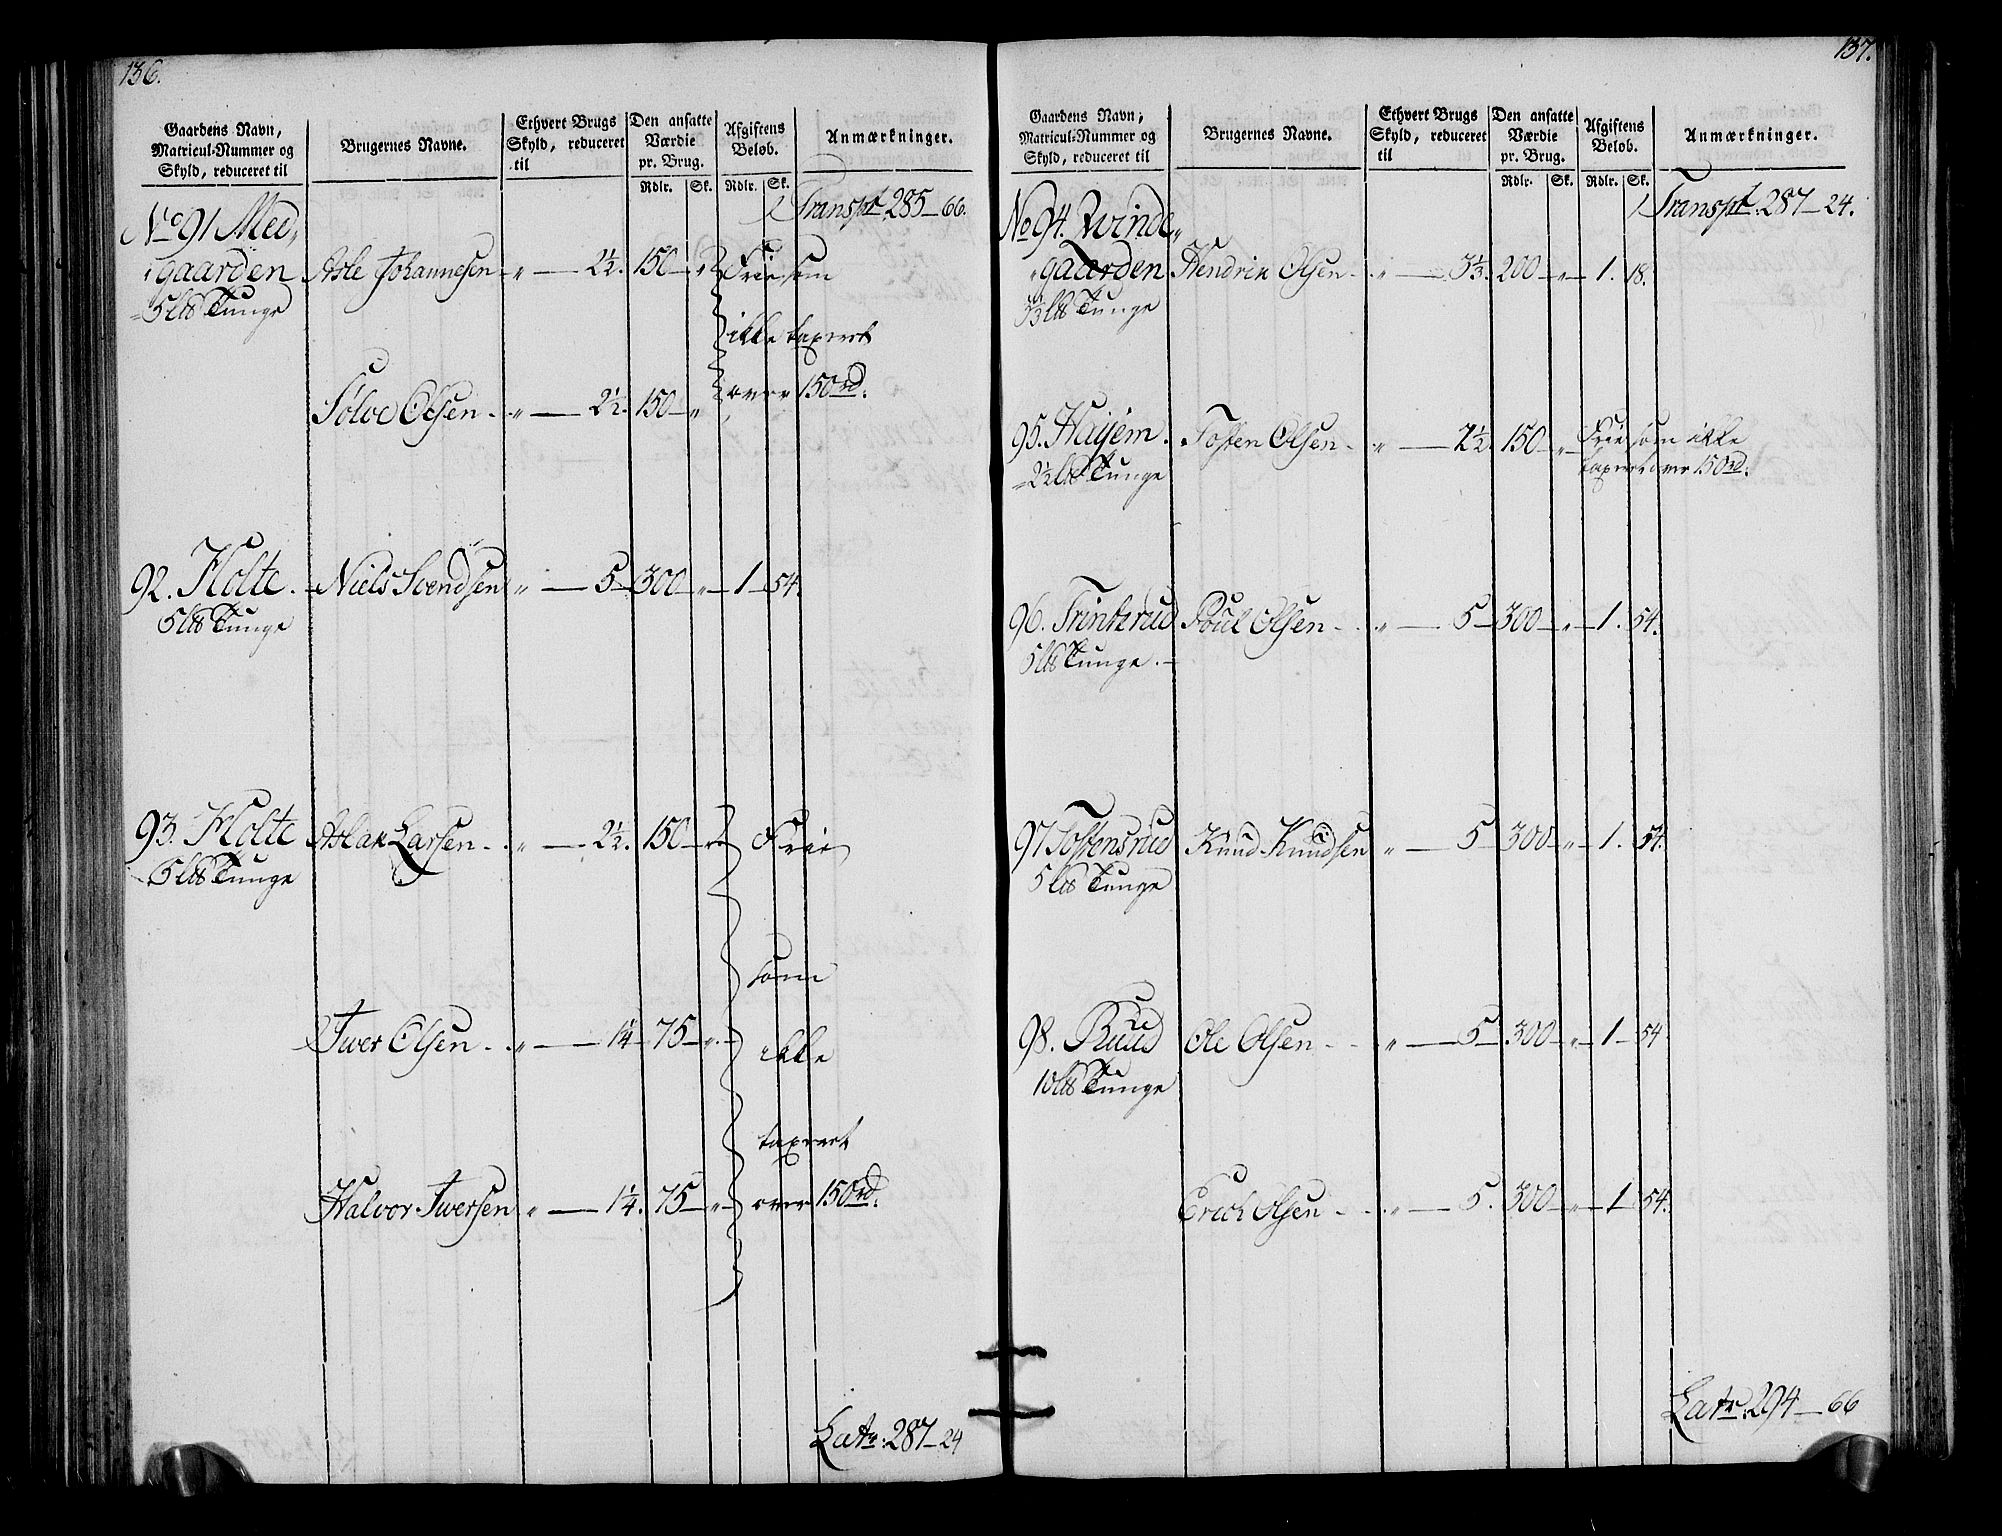 136.
Gaardens Navn, Matricul-Nummer og Skyld, reduceret til
Brugernes Navne.
Ethvert Brugs Skyld, reduceret til
Den ansatte Værdie pr. Brug.
Afgiftens Beløb.
Anmærkninger.
Rdlr. Sk. Rdlr. Sk.
Transpt 285-66.
No 91 Mel„
„gaarden Asle Johannesen „ — 2½. 150 „ Frie som
5 Lb Tunge
ikke taxeret
over 150rd.
Sølve Olsen. „ — 2½. 150 „
92. Holte. Niels Svendsen „ — 5 300 „ 1 54.
5 Lb Tunge
93. Holte Aslak Larsen „ — 2½. 150 „ Frie
5 Lb Tunge
som
Iver Olsen „ — 1¼ 75 „
ikke
taxeret
Halvor Iversen „ — 1¼. 75 „ over 150rd.
Latr: 287-24
137.
Gaardens Navn, Matricul-Nummer og Skyld, reduceret til
Brugernes Navne.
Ethvert Brugs Skyld, reduceret til
Den ansatte Værdie pr. Brug.
Afgiftens Beløb.
Anmærkninger.
Rdlr. Sk. Rdlr. Sk.
Transpt. 287-24.
No 94. Winde„
„gaarden Hendrik Olsen „ — 3⅓. 200 „ 1. 18.
3⅓ Lb Tunge
95. Hajem. Tosten Olsen „ — 2½. 150 „ Frie som ikke
2½ Lb Tunge taxeret over 150rd.
96. Trinterud Poul Olsen „ — 5 300 „ 1. 54.
5 Lb Tunge.
97 Tostensrud Knud Knudsen „ — 5 300 „ 1. 54.
5 Lb Tunge
98. Ruud Ole Olsen „ — 5. 300 „ 1 54
10 Lb Tunge
Erich Olsen „ — 5. 300 „ 1 54.
Latr: 294-66